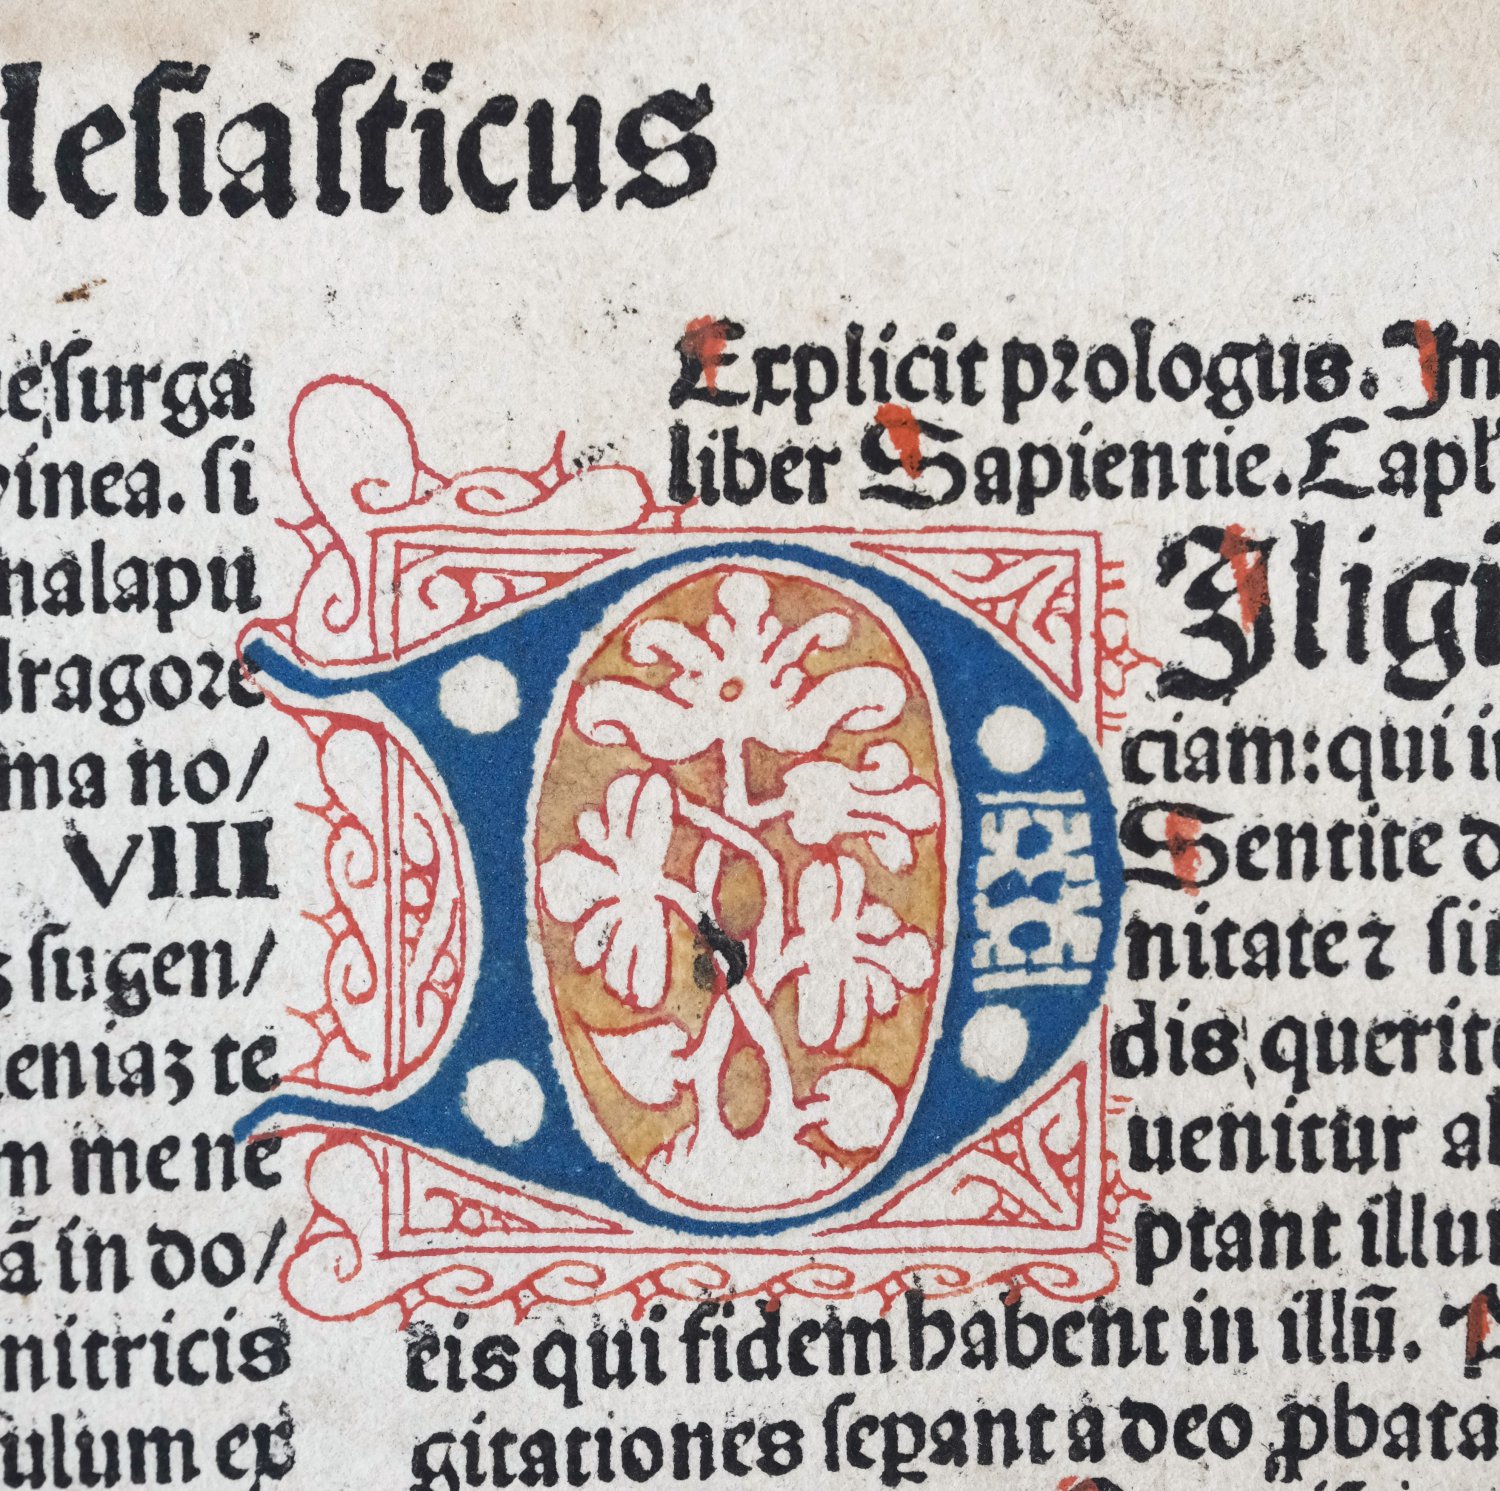 lesiasticus
surga
vinea. si
malapu
dragore
ma no/
VIII
sugen/
ueniaz te
m me ne
ā in do/
nitricis
ulum ex
Explicit prologus. In
liber Sapientie. Capl
D Iligi
ciam: qui i
Sentite d
nitate ⁊ sim
dis querite
uenitur ab
ptant illum
eis qui fidem habent in illū.
gitationes seꝑant a deo ꝓbata